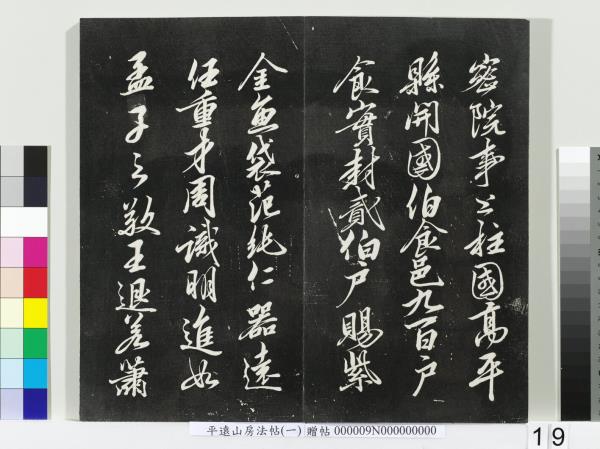 密院事上柱國高平
縣開國伯食邑九百户
食實封貳伯户賜紫
金魚袋范純仁器遠
任重才周識明進如
孟子之敬王退若蕭
平遠山房法帖(一) 贈帖 000009N000000000
19